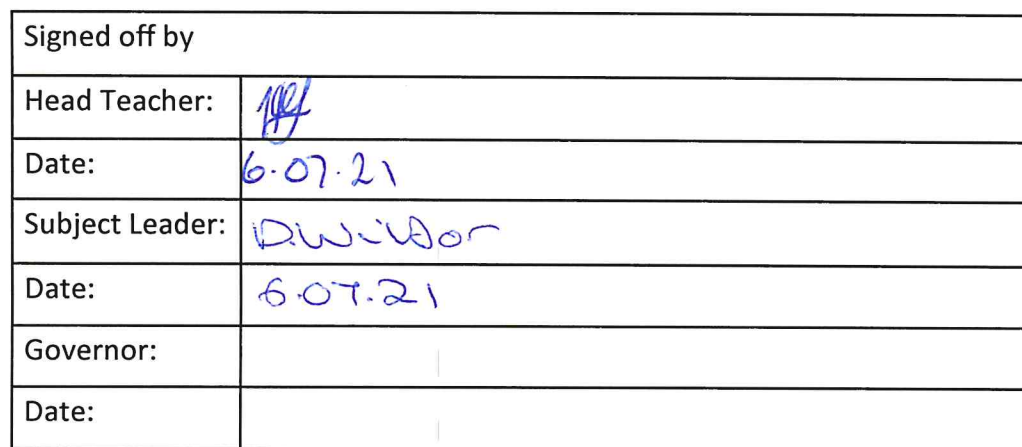 Signed off by
Head Teacher:
Date: 6.07.21
Subject Leader: D.Wilson
Date: 6.07.21
Governor:
Date: